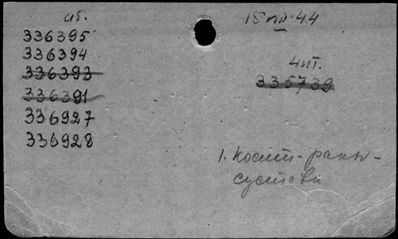 аб.
336395
336394
336393
336391
336927
336928
15 44
4 ит.
335739
1. косит-раны-
суставы